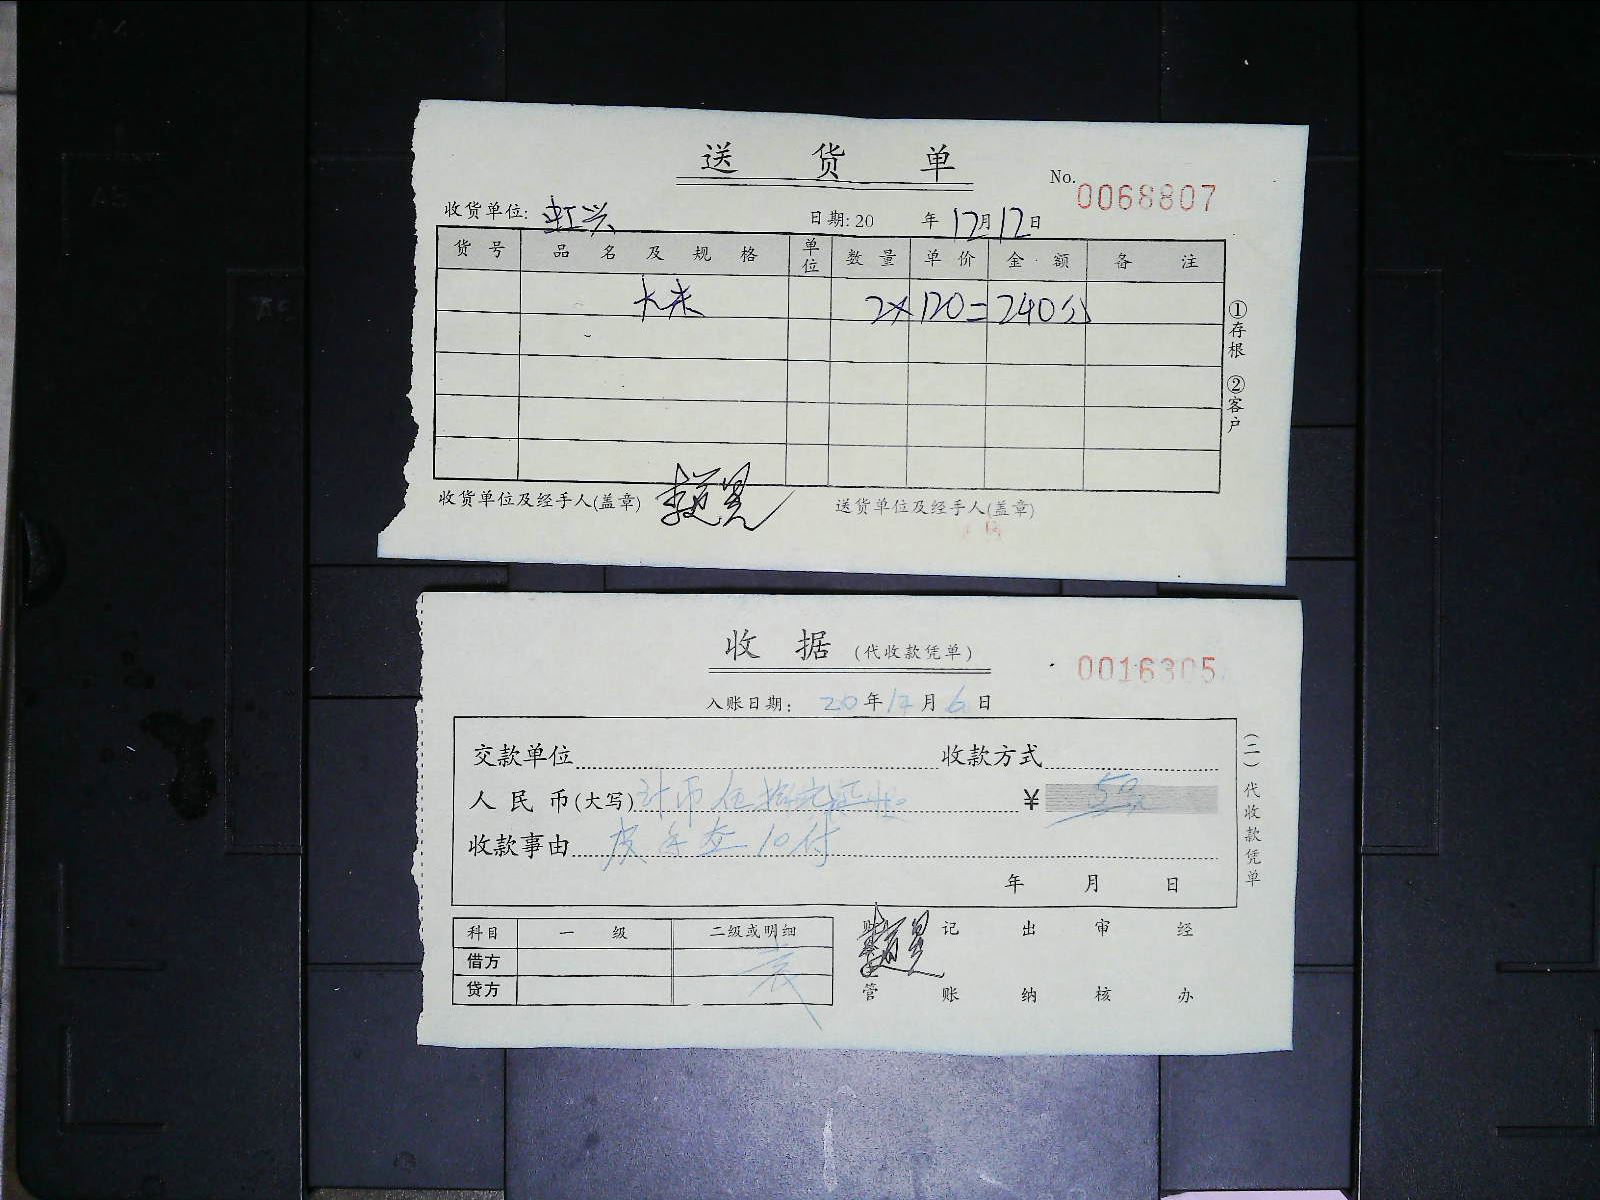 送 货 单
No. 0068807
收货单位: 虹兴 日期: 20 年 12月12日
货 号 品 名 及 规 格 单位 数 量 单 价 金 额 备 注
大米 2×120=240元
①存根 ②客户
收货单位及经手人(盖章) 送货单位及经手人(盖章)
收 据 (代收款凭单)
0016305
入账日期: 20年12月6日
交款单位 收款方式
人 民 币(大写) ¥ 50
收款事由 皮手套10付
年 月 日
(二)代收款凭单
科目 一 级 二级或明细
借方
贷方
记账 出纳 审核 经办